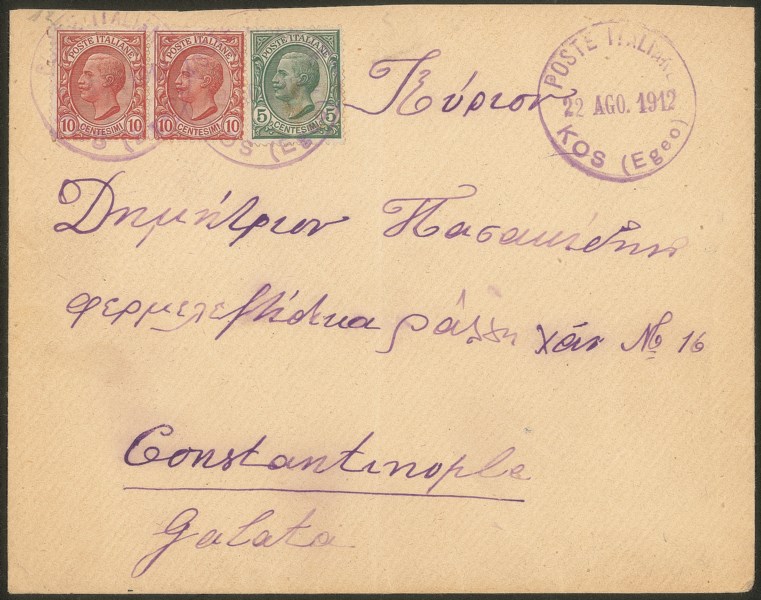 POSTE ITALIANE
10 CENTESIMI 10
POSTE ITALIANE
10 CENTESIMI 10
POSTE ITALIANE
5 CENTESIMI 5
POSTE ITALIANE
22 AGO. 1912
KOS (Egeo)
KOS (Egeo)
Κύριον
Δημήτριον Πασακίδην
φερμελετζίδικα ράλλη χάν № 16
Constantinople
Galata